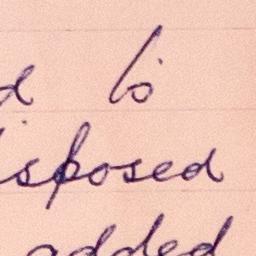 d to
isposed
added